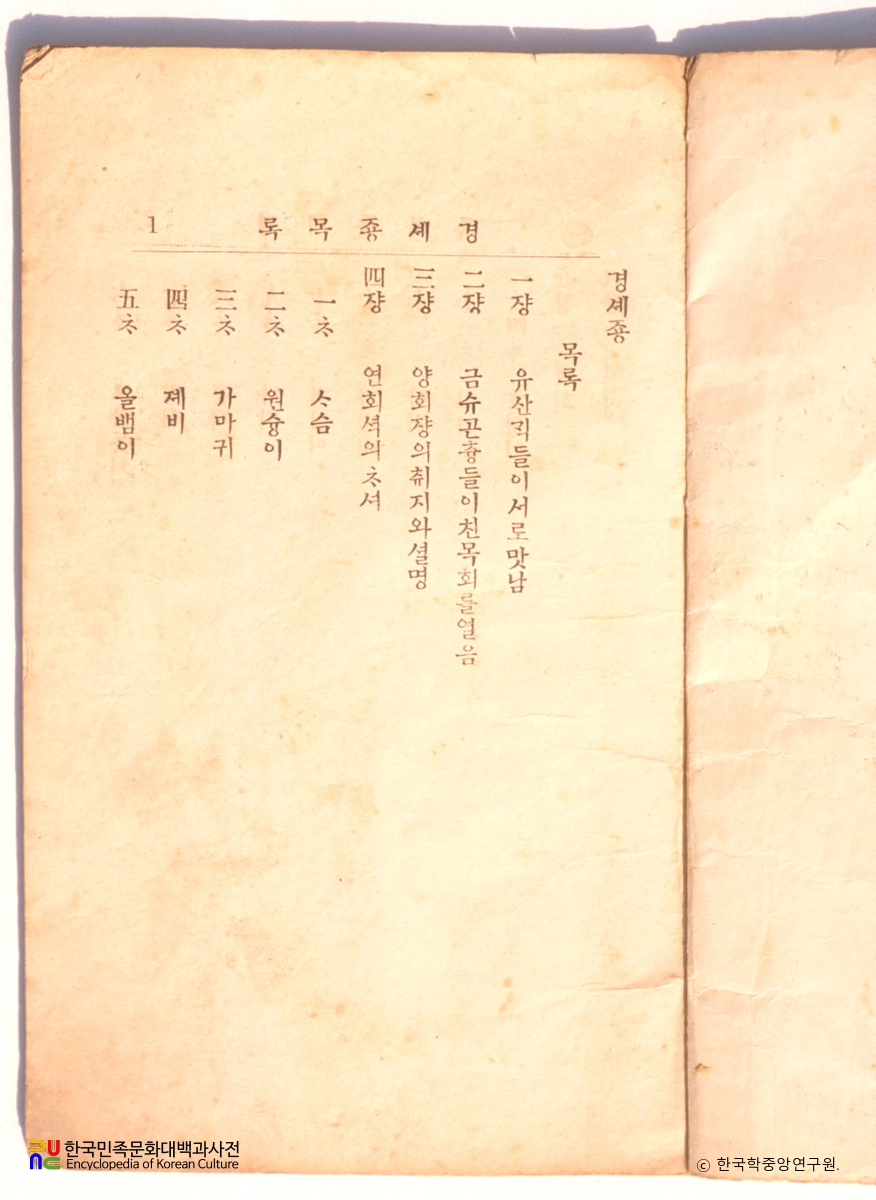 경셰죵 목록 1
경셰죵
목록
一쟝 유산ᄀᆡᆨ들이서로맛남
二쟝 금슈곤츙들이친목회를열음
三쟝 양회쟝의취지와셜명
四쟝 연회셕의ᄎᆞ셔
一ᄎᆞ ᄉᆞ슴
二ᄎᆞ 원슝이
三ᄎᆞ 가마귀
四ᄎᆞ 졔비
五ᄎᆞ 올뱀이
한국민족문화대백과사전
Encyclopedia of Korean Culture
© 한국학중앙연구원.